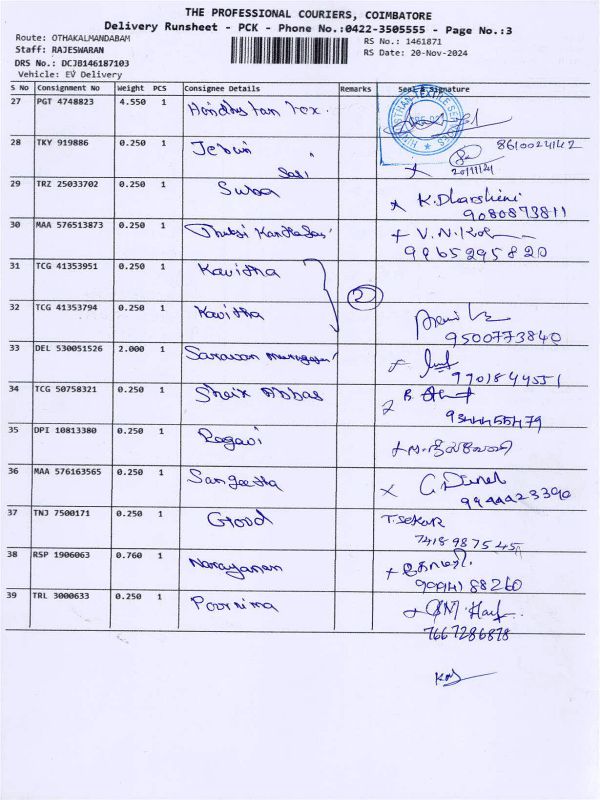 THE PROFESSIONAL COURIERS, COIMBATORE
Delivery Runsheet - PCK - Phone No.:0422-3505555 - Page No.:3
Route: OTHAKALMANDABAM
RS No.: 1461871
Staff: RAJESWARAN
RS Date: 20-Nov-2024
DRS No.: DCJB146187103
Vehicle: EV Delivery
S No Consignment No Weight PCS Consignee Details Remarks Seal & Signature
27 PGT 4748823 4.550 1 Hindhustan Tex.
28 TKY 919886 0.250 1 Jebin 8610024142
Sasi 20/11/24
29 TRZ 25033702 0.250 1 Suba K.Dharshini
9080873811
30 MAA 576513873 0.250 1 V.N.
9965295820
31 TCG 41353951 0.250 1 Kavitha
2
32 TCG 41353794 0.250 1 Kavitha
9500773840
33 DEL 530051526 2.000 1 Saravan
9701844551
34 TCG 50758321 0.250 1 Sheik Abbas B.
9344455479
35 DPI 10813380 0.250 1 Ragavi
36 MAA 576163565 0.250 1 Sangeetha
9944423390
37 TNJ 7500171 0.250 1 Good T.SEKAR
7418987545
38 RSP 1906063 0.760 1 Narayanan
9994188260
39 TRL 3000633 0.250 1 Poornima
7667286878